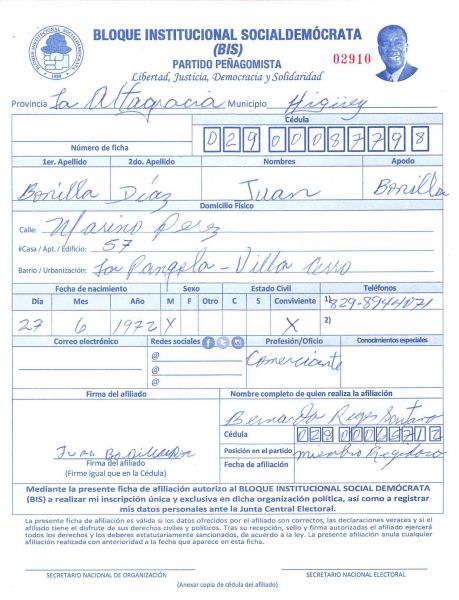 BLOQUE INSTITUCIONAL SOCIALDEMÓCRATA
(BIS)
PARTIDO PEÑAGOMISTA
02910
Libertad, Justicia, Democracia y Solidaridad
Provincia La Altagracia Municipio Higüey
Cédula
Número de ficha
029 0008779 8
1er. Apellido 2do. Apellido Nombres Apodo
Bonilla Díaz Juan Bonilla
Domicilio Físico
Calle: Marino Perez
#Casa / Apt. / Edificio: 57
Barrio / Urbanización: La Pangola - Villa Cerro
Fecha de nacimiento Sexo Estado Civil Teléfonos
Día Mes Año M F Otro C S Conviviente 1) 829-894-4071
27 6 1972 X X 2)
Correo electrónico Redes sociales Profesión/Oficio Conocimientos especiales
@ Comerciante
@
@
Firma del afiliado Nombre completo de quien realiza la afiliación
Bernardo Reyes Santana
Cédula
Juan Bonilla
Posición en el partido miembro
Firma del afiliado
(Firme igual que en la Cédula)
Fecha de afiliación
Mediante la presente ficha de afiliación autorizo al BLOQUE INSTITUCIONAL SOCIAL DEMÓCRATA
(BIS) a realizar mi inscripción única y exclusiva en dicha organización política, así como a registrar
mis datos personales ante la Junta Central Electoral.
La presente ficha de afiliación es válida si los datos ofrecidos por el afiliado son correctos, las declaraciones veraces y si el afiliado
tiene el disfrute de sus derechos civiles y políticos. Tras su recepción, sello y firma autorizadas el afiliado ejercerá
todos los derechos y los deberes estatutariamente sancionados, de acuerdo a la ley. La presente afiliación anula cualquier
afiliación realizada con anterioridad a la fecha que aparece en esta ficha.
SECRETARIO NACIONAL DE ORGANIZACIÓN SECRETARIO NACIONAL ELECTORAL
(Anexar copia de cédula del afiliado)